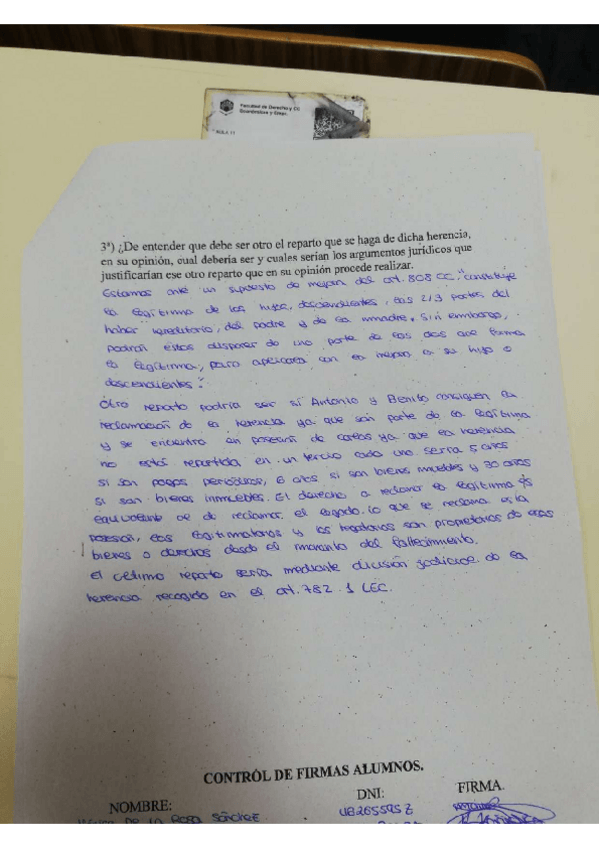 Facultad de Derecho y CC
Económicas y Empr.
AULA 11
3ª) ¿De entender que debe ser otro el reparto que se haga de dicha herencia,
en su opinión, cual debería ser y cuales serían los argumentos jurídicos que
justificarían ese otro reparto que en su opinión procede realizar.
Estamos ante un supuesto de mejora del art. 808 CC. "constituye
la legítima de los hijos, descendientes, las 2/3 partes del
haber hereditario, del padre y de la madre. Sin embargo,
podrán éstos disponer de una parte de las dos que forma
la legítima, para aplicarla con la mejora a su hijo o
descendientes".
Otro reparto podría ser si Antonio y Benito consiguen la
reclamación de la herencia ya que son parte de la legítima
y se encuentra en posesión de Carlos ya que la herencia
no está repartida en un tercio cada uno. Serra 5 años
si son pagos periódicos, 6 años si son bienes muebles y 30 años
si son bienes inmuebles. El derecho a reclamar la legítima es
equivalente al de reclamar el legado. Lo que se reclama es la
posesión, los legitimarios y los legatarios son propietarios de esos
bienes o derechos desde el momento del fallecimiento.
El último reparto sería mediante división judicial de la
herencia recogido en el art. 782.1 LEC.
CONTROL DE FIRMAS ALUMNOS.
NOMBRE: DNI: FIRMA.
De La Rosa Sánchez